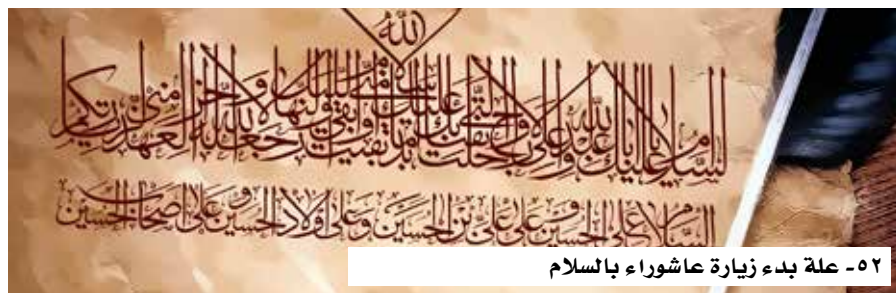 الله
السلام عليك يا أبا عبد الله وعلى الأرواح التي حلت بفنائك عليك مني سلام الله أبدا ما بقيت وبقي الليل والنهار ولا جعله الله آخر العهد مني لزيارتكم
السلام على الحسين وعلى علي بن الحسين وعلى أولاد الحسين وعلى أصحاب الحسين
٥٢- علة بدء زيارة عاشوراء بالسلام